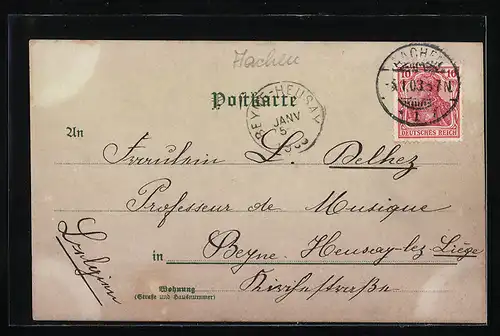 Aachen
AACHEN
10 10
-5.1.03.5-7N.
1
DEUTSCHES REICH
Postkarte
BEYNE-HEUSAY
5 JANV
An
Fräulein L. Delhez
Professeur de Musique
in Beyne-Heusay-lez-Liège
Wohnung
(Straße und Hausnummer)
Kirchestraße